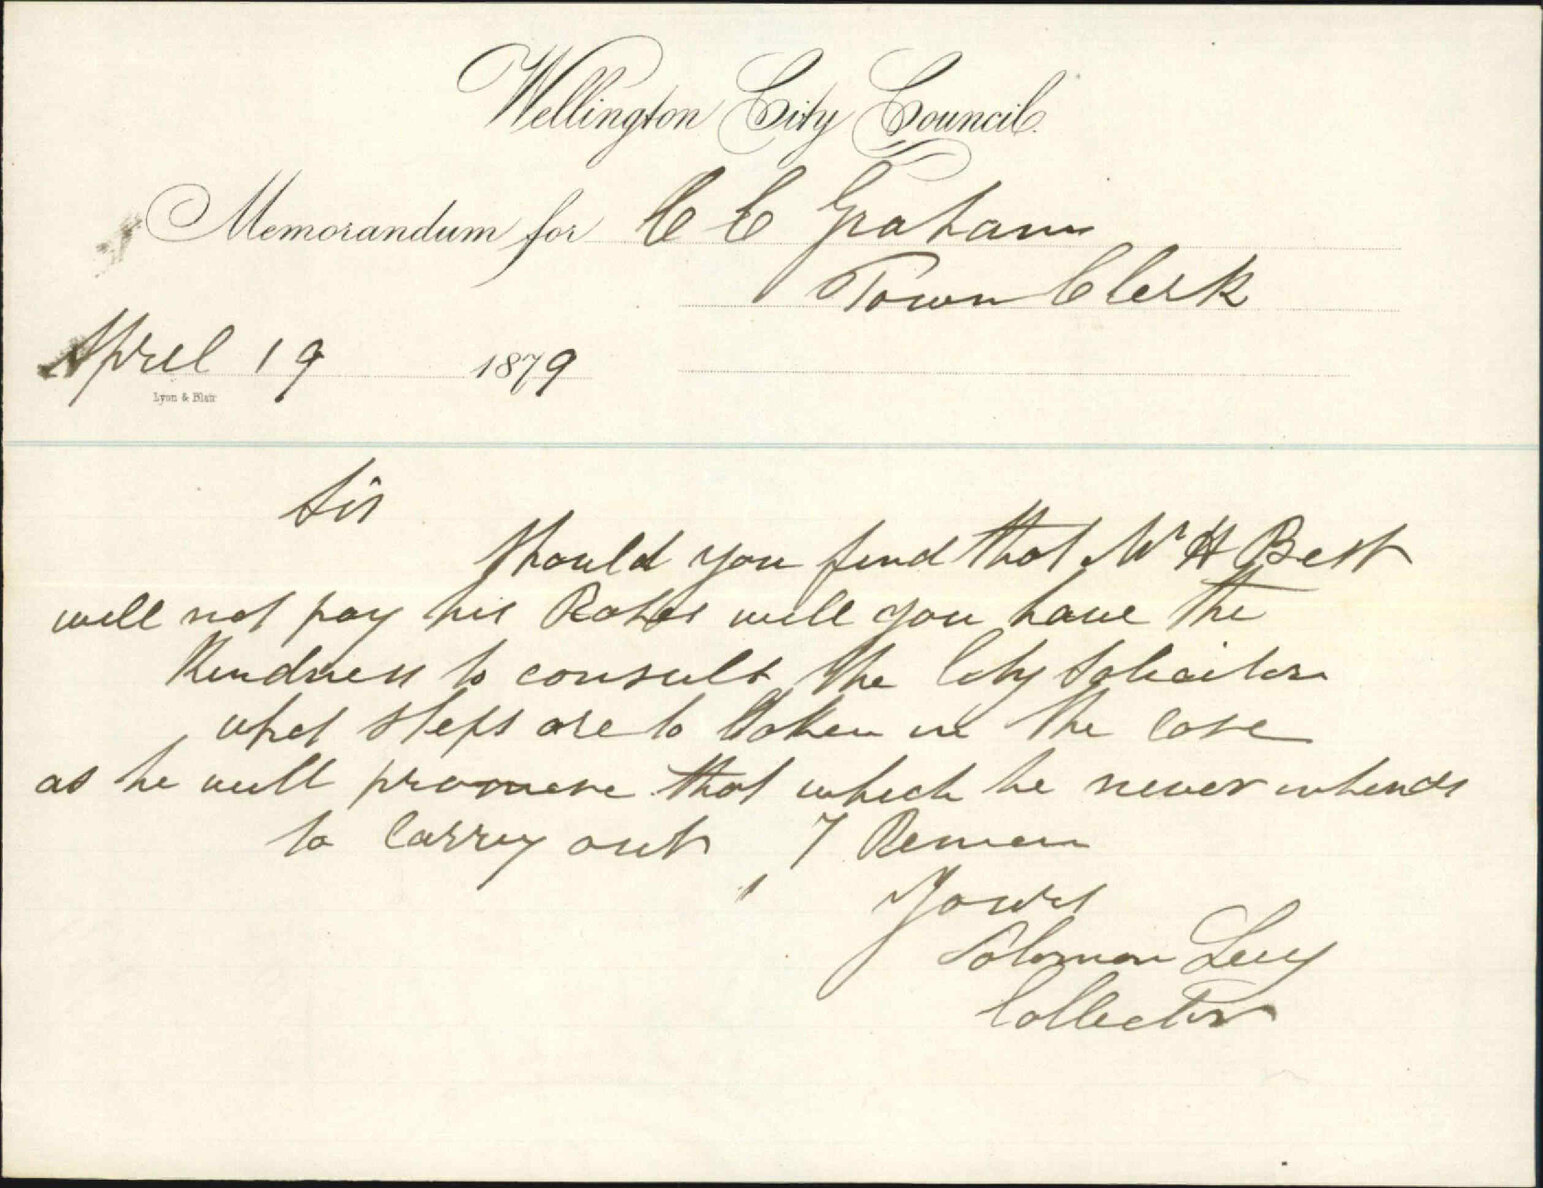 Wellington City Council.
Memorandum for C C Graham
Town Clerk
April 19 1879
Lyon & Blair
Sir
Should you find that Mr H Best
will not pay his Rates will you have the
Kindness to consult the City Solicitor
what steps are to taken in the case
as he will promise that which he never intends
to Carry out I Remain
Yours
Solomon Levy
Collector